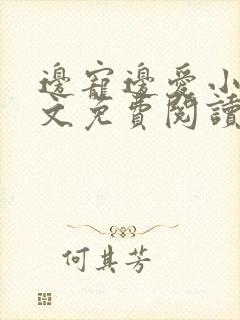 邊寵邊愛小
文免費閱讀
何其芳